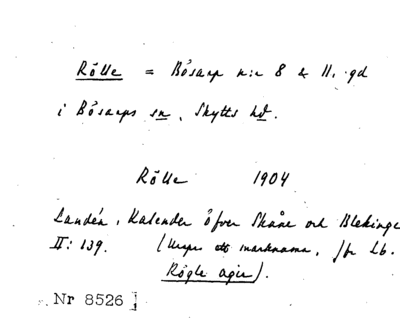 Rölle = Bösarp n:r 8 & 11. gd
i Bösarps sn, Skytts hd.
Rölle 1904
Landén, Kalender öfver Skåne och Blekinge
II: 139. (Urspr ett marknamn, jfr Lb.
Rögle ager).
Nr 8526